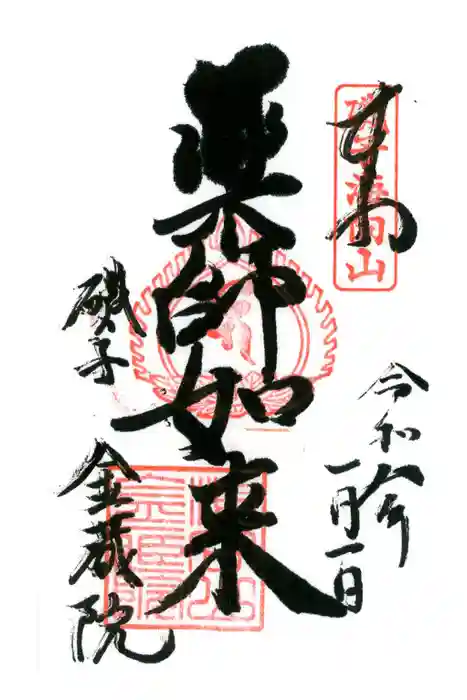 奉拝
磯子海向山
薬師如来
令和
一月一日
磯子
金蔵院